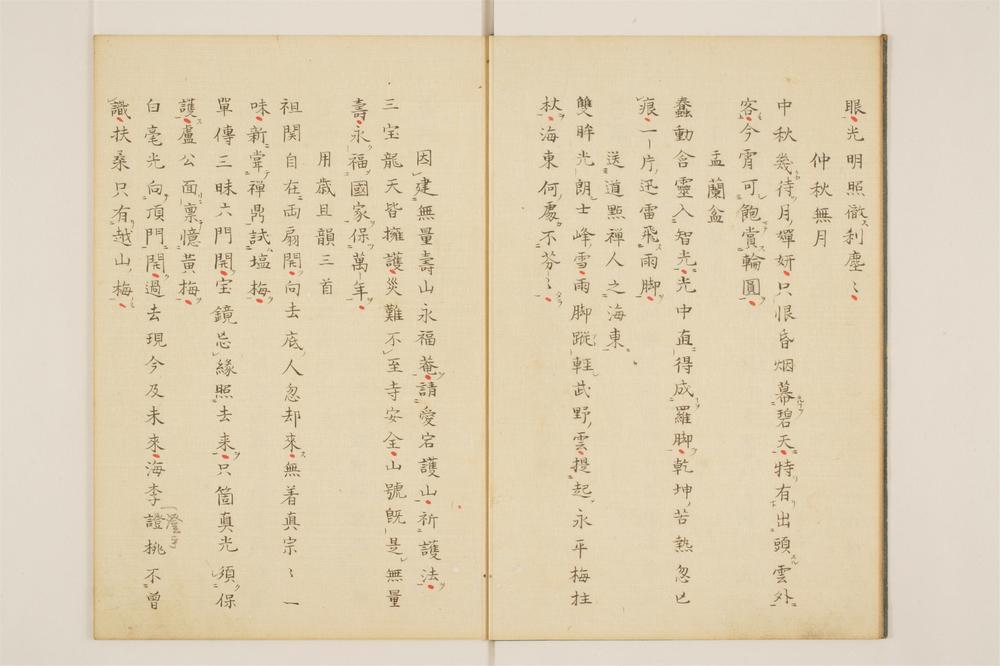 眼光明照徹刹塵〻
仲秋無月
中秋幾待月嬋妍只恨昏烟幕碧天特有出頭雲外
客今霄可飽賞輪圓
盂蘭盆
蠢動含靈入智光光中直得成羅脚乾坤苦熱忽已
痕一片迅雷飛雨脚
送道㸃禅人之海東
雙眸光朗士峰雪雨脚蹤輕武野雲提起永平梅拄
杖海東何處不芬〻
因建無量壽山永福菴請愛宕護山祈護法
三宝龍天皆擁護災難不至寺安全山號既是無量
壽永福國家保萬年
用歳旦韻三首
祖関自在両扇開向去底人忽却來無着真宗〻一
味新甞禅鼎試塩梅
單傳三昧六門開宝鏡忘緣照去来只箇真光須保
護盧公面稟憶黄梅
白毫光向頂門開過去現今及未來海李證桃不曽
識扶桑只有越山梅